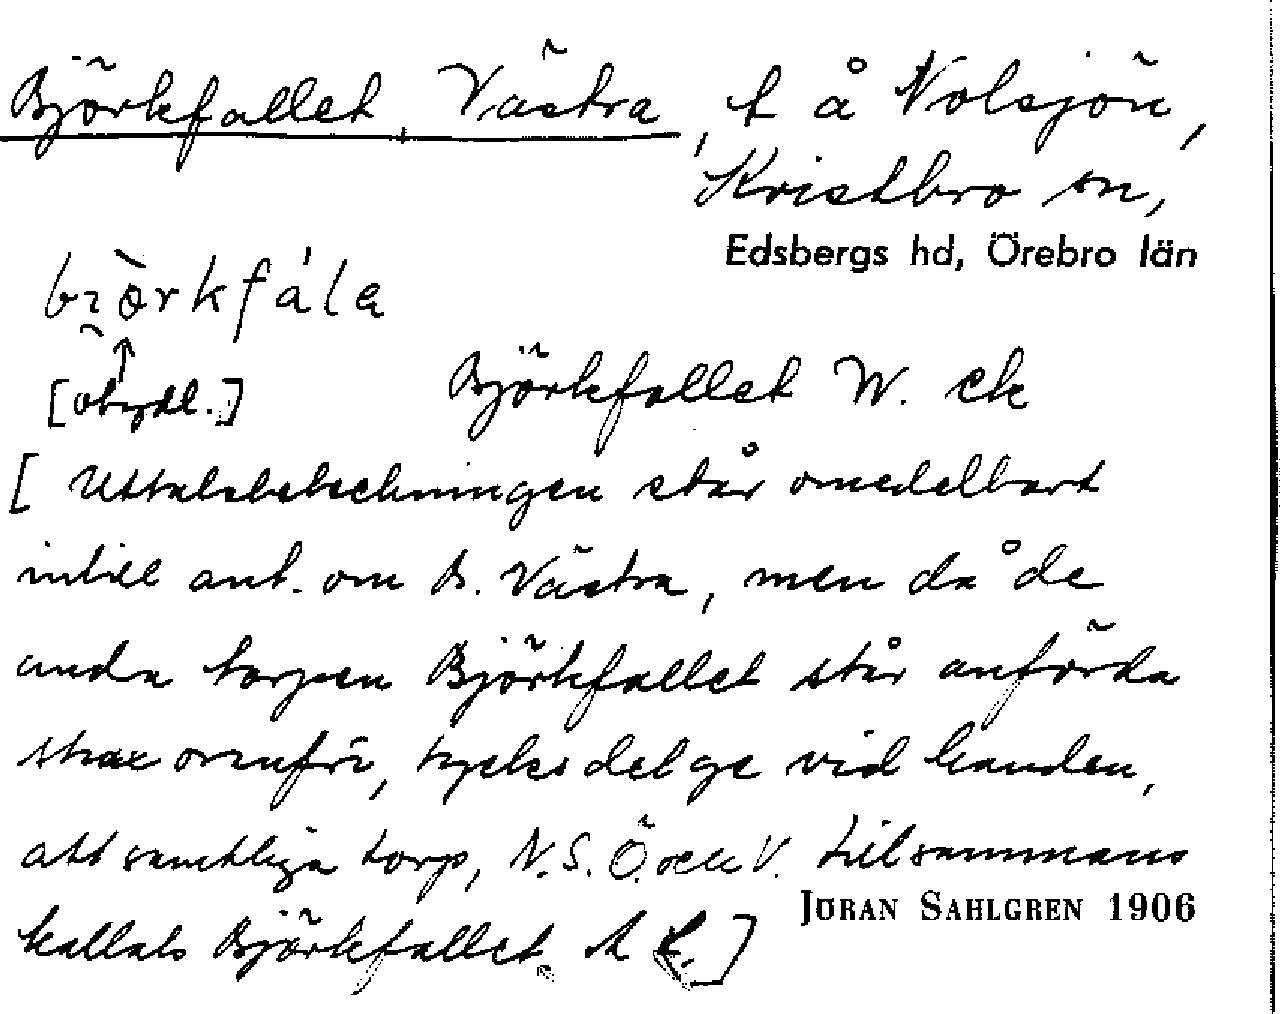 Björkfallet, Västra, t å Nolsjön,
Kristbro sn,
Edsbergs hd, Örebro län
bi̯òrkfála
[otydl.]
Björkfallet W. ek
[Uttalsbeteckningen står omedelbart
intill ant. om B. Västra, men då de
andra torpen Björkfallet står anförda
strax ovanför, tycks det ge vid handen,
att samtliga torp, N. S. Ö. och V. tillsammans
JÖRAN SAHLGREN 1906
kallats Björkfallet.